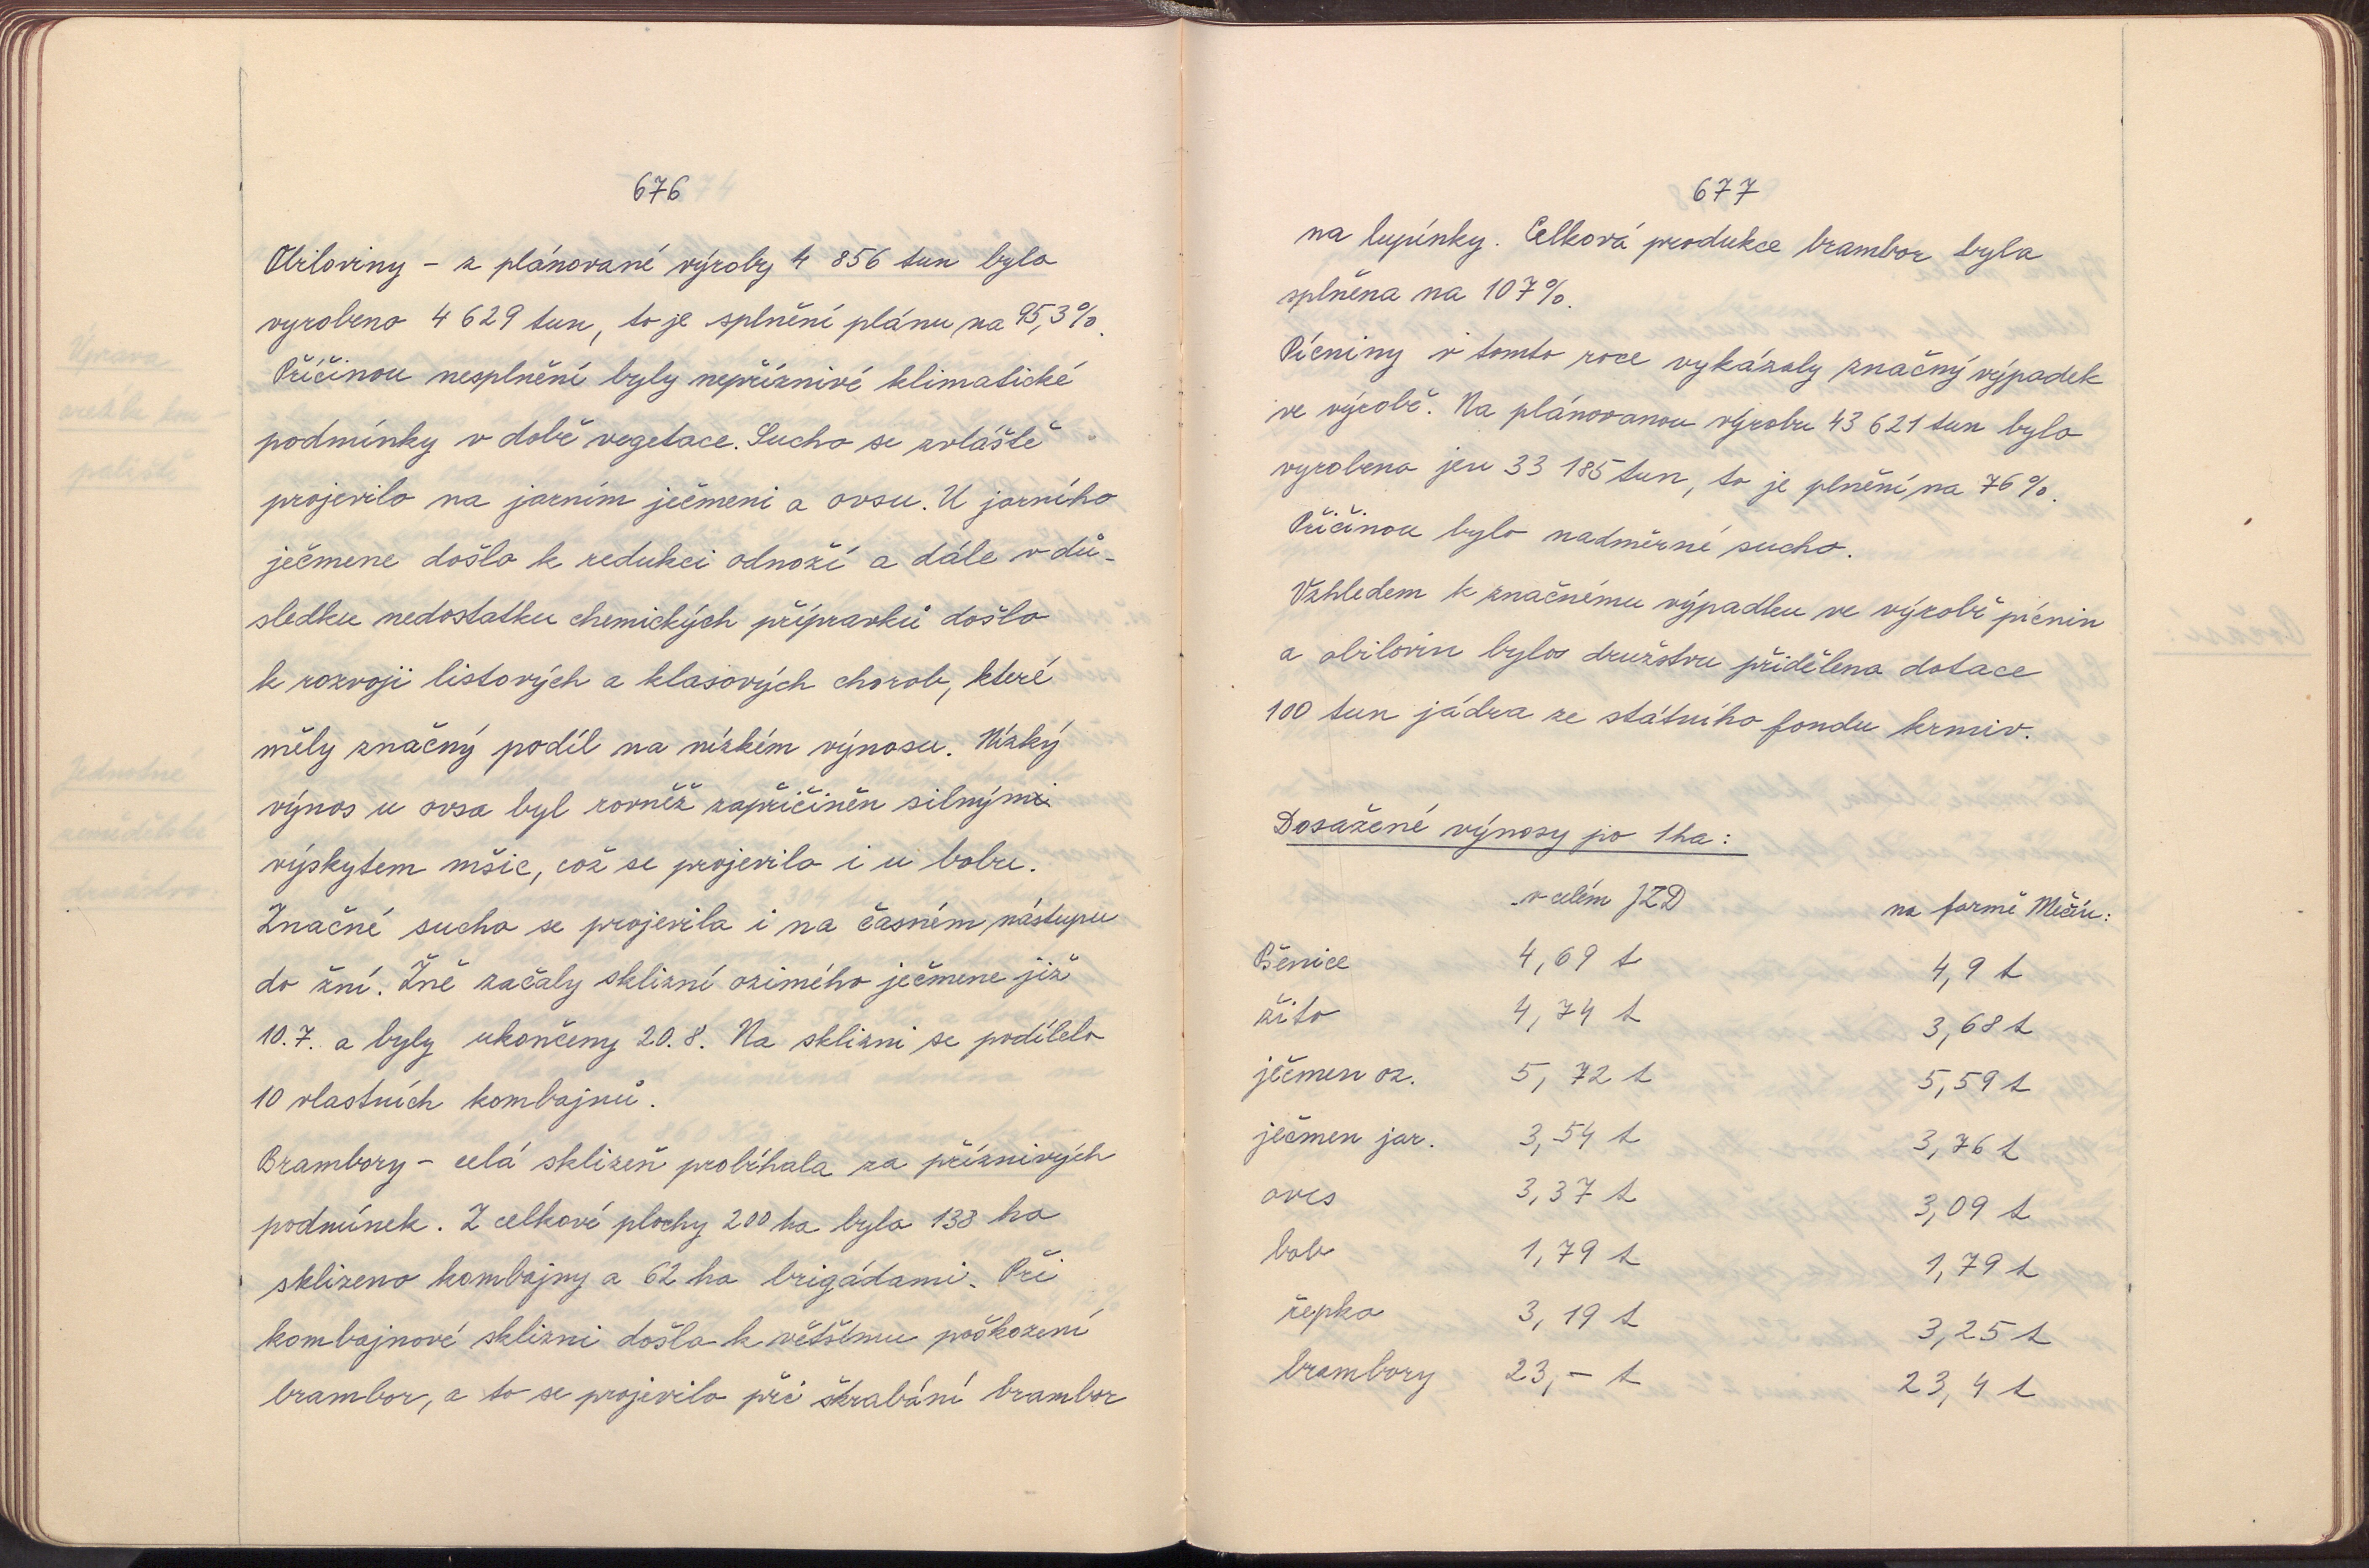 676
Obiloviny - z plánované výroby 4 856 tun bylo
vyrobeno 4 629 tun, to je splnění plánu na 95,3%.
Příčinou nesplnění byly nepříznivé klimatické
podmínky v době vegetace. Sucho se zvláště
projevilo na jarním ječmeni a ovsu. U jarního
ječmene došlo k redukci odnoží a dále v dů-
sledku nedostatku chemických přípravků došlo
k rozvoji listových a klasových chorob, které
měly značný podíl na nízkém výnosu. Nízký
výnos u ovsa byl rovněž zapříčiněn silným
výskytem mšic, což se projevilo i u bobu.
Značné sucho se projevila i na časném nástupu
do žní. Žně začaly sklizní ozimého ječmene již
10.7. a byly ukončeny 20.8. Na sklizni se podílelo
10 vlastních kombajnů.
Brambory - celá sklizeň probíhala za příznivých
podmínek. Z celkové plochy 200 ha bylo 138 ha
sklizeno kombajny a 62 ha brigádami. Při
kombajnové sklizni došlo k většímu poškození
brambor, a to se projevilo při škrabání brambor
677
na lupínky. Celková produkce brambor byla
splněna na 107%.
Pícniny v tomto roce vykázaly značný výpadek
ve výrobě. Na plánovanou výrobu 43 621 tun bylo
vyrobeno jen 33 185 tun, to je plnění na 76%.
Příčinou bylo nadměrné sucho.
Vzhledem k značnému výpadku ve výrobě pícnin
a obilovin byla družstvu přidělena dotace
100 tun jádra ze státního fondu krmiv.
Dosažené výnosy po 1ha:
v celém JZD na farmě Mečín:
Pšenice 4,69 t 4,9 t
žito 4,74 t 3,68 t
ječmen oz. 5,72 t 5,59 t
ječmen jar. 3,54 t 3,76 t
oves 3,37 t 3,09 t
bob 1,79 t 1,79 t
řepka 3,19 t 3,25 t
brambory 23,- t 23,4 t